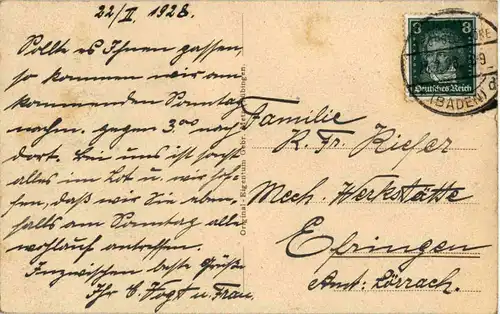 22/II. 1928.
Sollte es Ihnen passen,
so kommen wir am
kommenden Sonntag
nachm. gegen 3.00 nach
dort. Bei uns ist sonst
alles im Lot u. wir hof-
fen, daß wir Sie eben-
falls am Sonntag alle
wohlauf antreffen.
Inzwischen beste Grüße
Ihr Vogt u. Frau.
Original-Eigentum Gebr. Metz, Tübingen.
8 8
Deutsches Reich
(BADEN)
Familie
K. Fr. Kiefer
Mech. Werkstätte
Efringen
Amt: Lörrach.